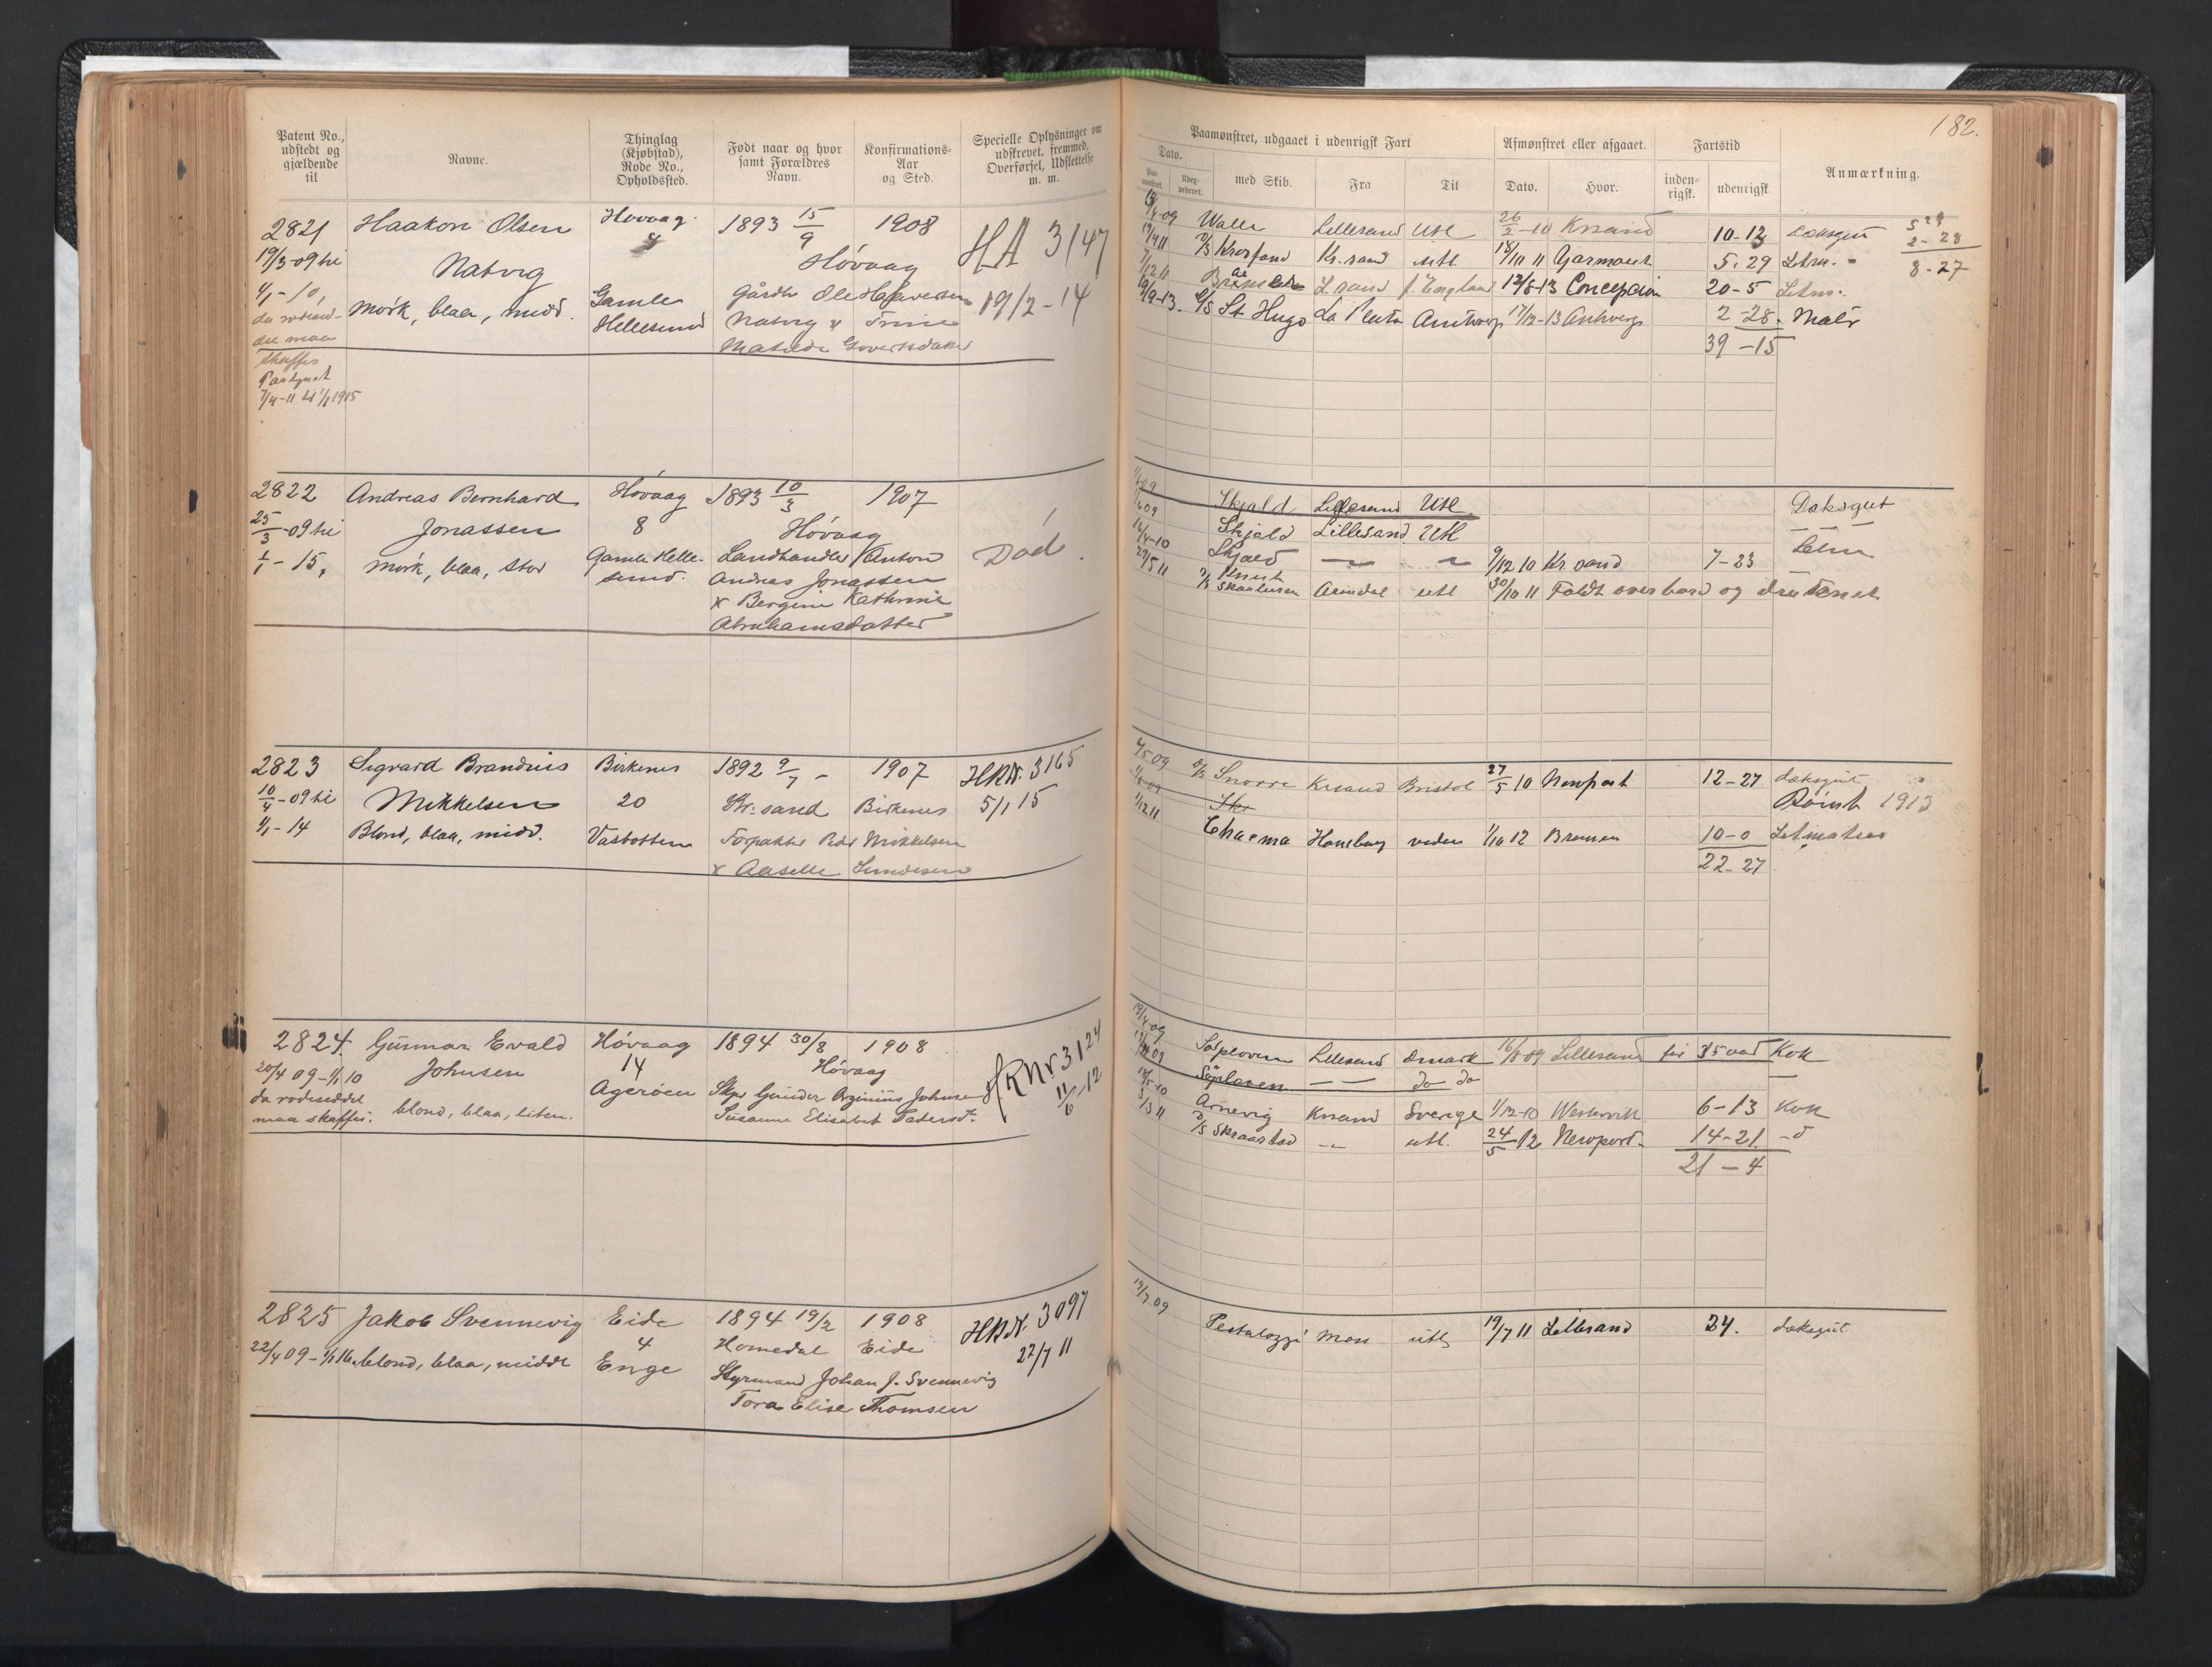 182.
Patent No., udstedt og gjældende til
Navne.
Thinglag (Kjøbstad), Rode No., Opholdssted.
Født naar og hvor samt Forældres Navn.
Konfirmations-Aar og Sted.
Specielle Oplysninger om udskrevet, fremmed, Overførsel, Udslettelse m. m.
Paamønstret, udgaaet i udenrigsk Fart
Afmønstret eller afgaaet.
Fartstid
Dato.
med Skib.
Fra
Til
Dato.
Hvor.
inden-rigsk.
udenrigsk.
Anmærkning.
2821 Haakon Olsen Høvaag 1893 15/9 1908 HA 3147
19/3-09 til Natvig 4 Høvaag
1/1-10, Mørk, blaa, midd. Gamle Gårdbr Ole Halvorsen 19/2-14
Hellesund Natvig &
maa Matilde
skaffes
7/4-11 til 1/1 1915
Walle Lillesand Utl 26/2-10 Krsand 10-12 Dæksgut
Kr.sand utl 18/10 11 Yarmout 5.29 Letm.
7/12 11 L.sand f. England 12/8-13 Concepcion 20-5 Letm.
St Hugo La Plata Antwerp 17/12-13 Anhverp 2-28. Matr
39-15
2-28
8-27
2822 Andreas Bernhard Høvaag 1893 10/3 1907
25/3-09 til Jonassen 8 Høvaag
1/1-15, mørk, blaa, stor Gamle Helle- Landhandler Anton Død.
sund. Andreas Jonassen
& Bergine Kathrine
Abrahamsdatter
Skjald Lillesand Utl. Dæksgut
Skjald Lillesand Utl
16/4-10 Skjald 9/12 10 Kr.sand 7-23 Letm
29/5 11 Knut Skaaluren Arendal utl 30/10 11 Faldt overbord og druknet
2823 Sigvard Brandius Birkenes 1892 9/7 - 1907 HRNr. 3165
10/4-09 til Mikkelsen 20 Kr.sand Birkenes 5/1 15
1/1-14 Blond, blaa, midd. Vasbotten Forpakter Mikkelsen
& Aaselle
4/5 09 Snorre Krsand Bristol 27/5 10 Newport 12-27 dæksgut
1913
1/12 11 Hamburg verden 1/10 12 Bremen 10-0 Letmatros
22-27
2824. Gunnar Evald Høvaag 1894 30/8 1908 HRNr 3124
20/4 09-1/1 10 Johnsen 14 Høvaag 11/6-12
da rodeseddel Agerøen Skpr Gunder Johnsen
maa skaffes. blond, blaa, liten. Susanne Elisabet
19/4-09 Søploven Lillesand Dmark 16/8 09 Lillesand Kok
Søploven do do
Arnevig Krsand Sverige 1/12-10 Westervik 6-13 Kok
Skraastad utl. 24/5 12 Newport 14-21 -d
21-4
2825 Jakob Svennevig Eide 1894 19/2 1908 HRNr. 3097
22/4 09-1/1 16. blond, blaa, middl 4 Homedal Eide 22/7 11
Enge Styrmand Johan J. Svennevig
Tora Elise Thomsen
19/7 09 Pestalozzi Moss utl 19/7 11 Lillesand 24. dæksgut